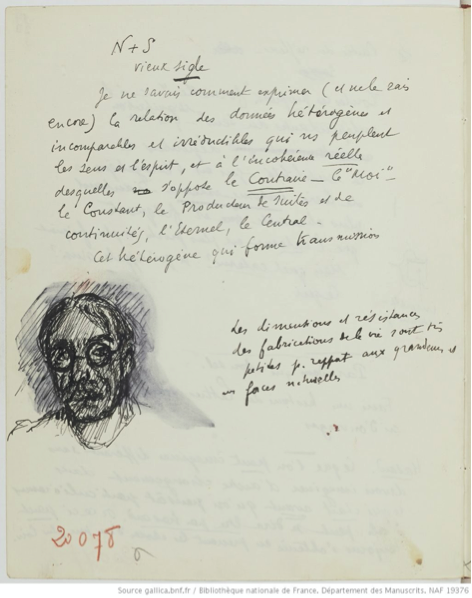 N + S
vieux sigle
Je ne savais comment exprimer (et ne le sais
encore) la relation des données hétérogènes et
incomparables et irréductibles qui ns peuplent
les sens et l'esprit, et à l'incohérence réelle
desquelles s'oppose le Contraire – le "Moi" –
le Constant, le Producteur de suites et de
continuités, l'Eternel, le Central –
Cet hétérogène qui forme transmission
Les dimensions et résistances
des fabrications de la vie sont très
petites p. rappt aux grandeurs et
forces naturelles
20078
6
Source gallica.bnf.fr / Bibliothèque nationale de France, Département des Manuscrits, NAF 19376